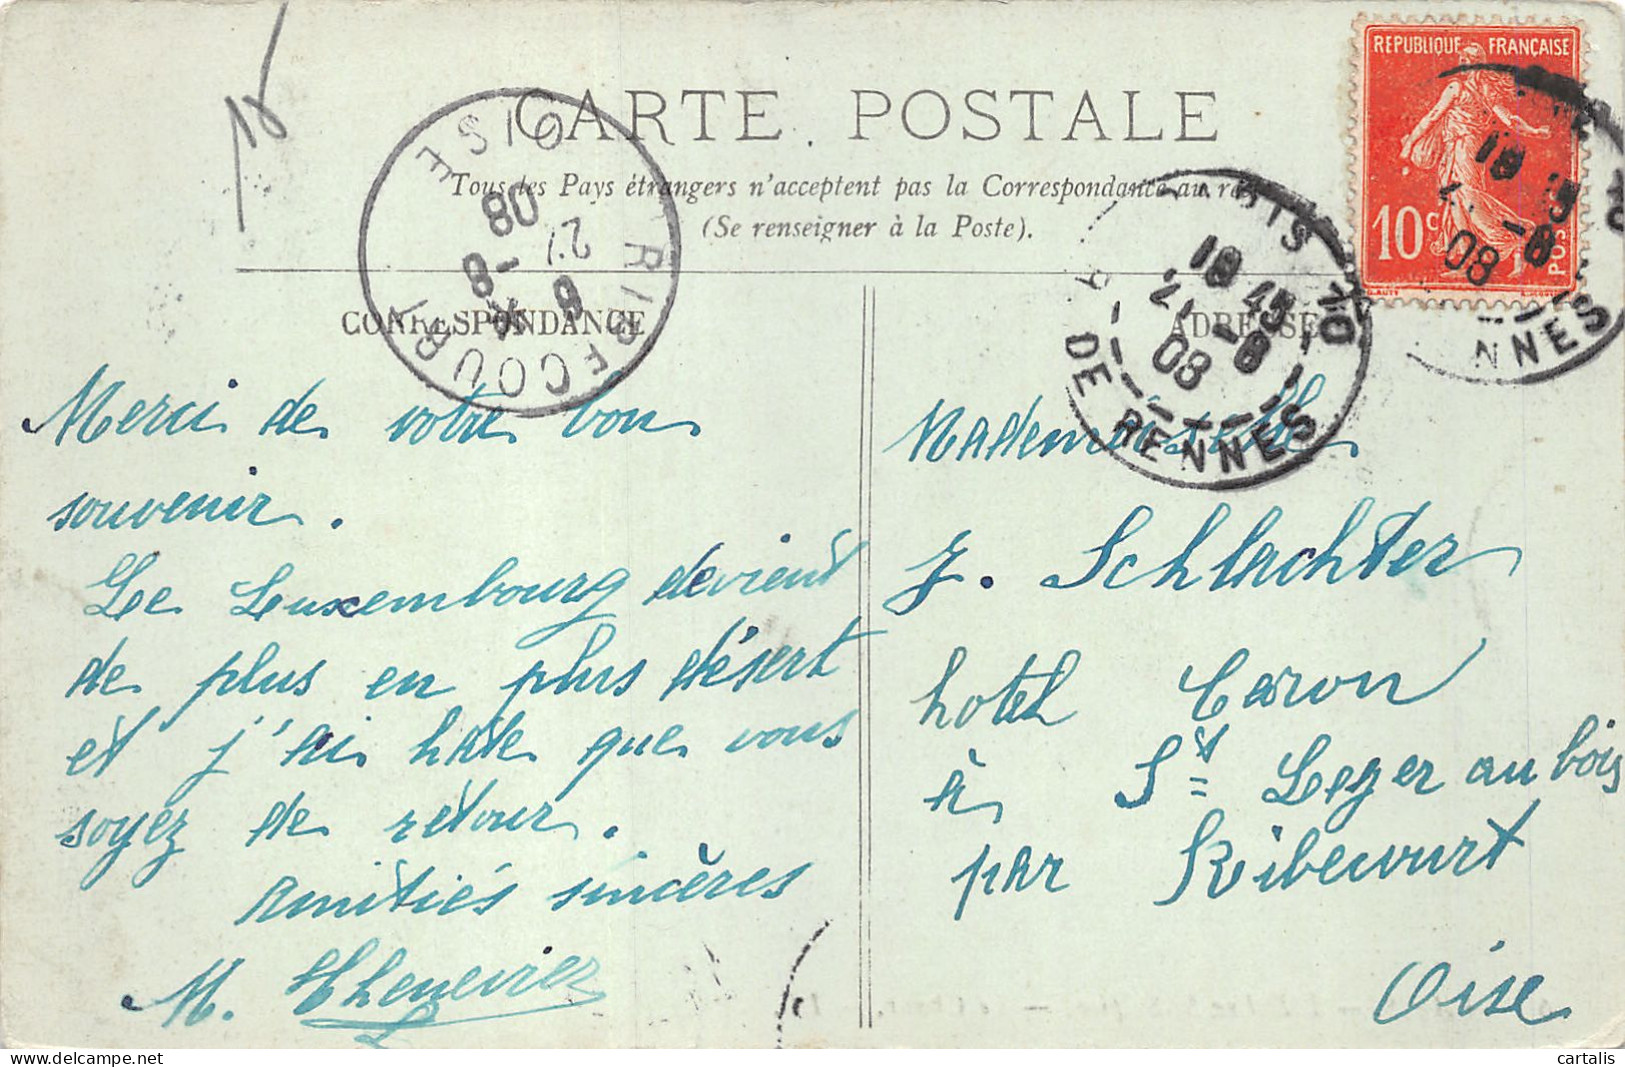 CARTE POSTALE
Tous les Pays étrangers n'acceptent pas la Correspondance au
(Se renseigner à la Poste).
CORRESPONDANCE
ADRESSE
REPUBLIQUE FRANÇAISE
10c
POSTES
OISE
RIBECOURT
8 -8
27
08
PARIS
DE RENNES
18 45
21 -8
08
18 45
-8
08
NNES
Merci de votre bon
souvenir.
Le Luxembourg devient
de plus en plus désert
et j'ai hâte que vous
soyez de retour.
Amitiés sincères
M. Thenevier
Mademoiselle
J. Schlachter
hotel Caron
à St Leger au bois
par Ribecourt
Oise
cartalis